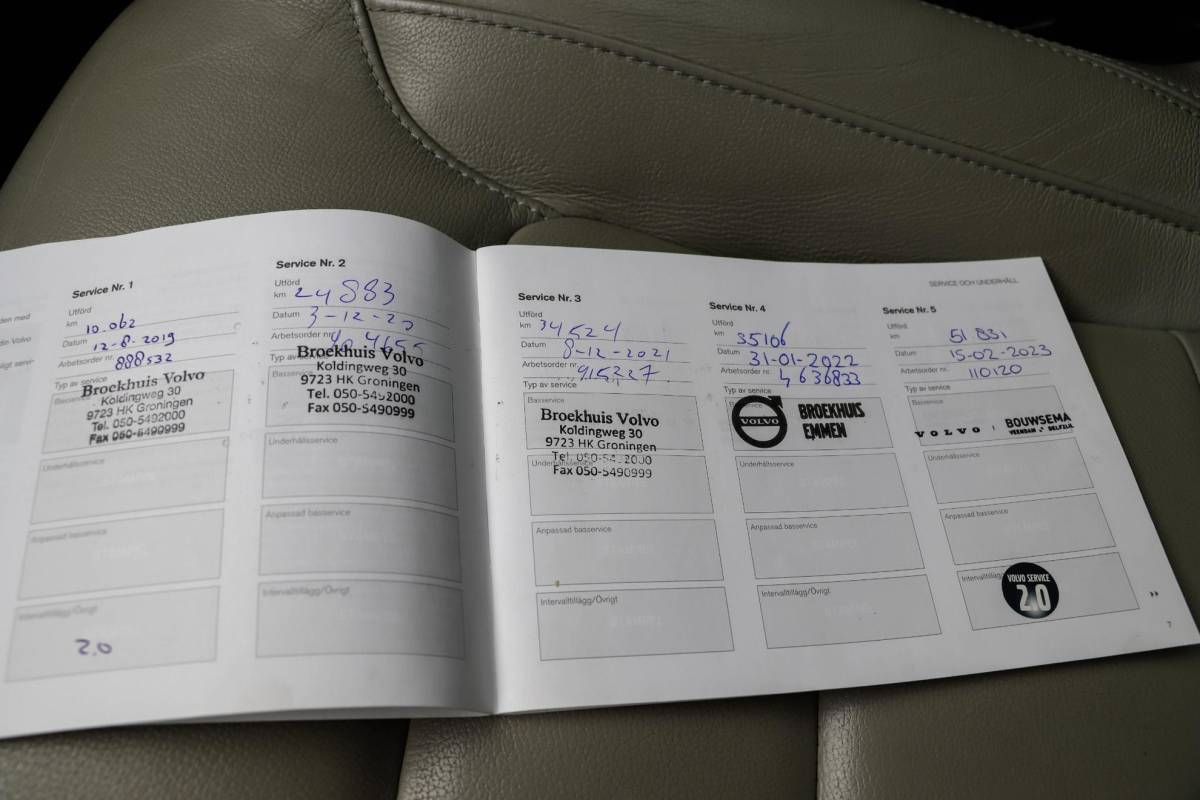 den med
din Volvo
ligt servi-
Service Nr. 1
Utförd
km 10.062
Datum 12-8-2019
Arbetsorder nr. 888532
Typ av service
Basservice
Broekhuis Volvo
Koldingweg 30
9723 HK Groningen
Tel. 050-5492000
Fax 050-5490999
Underhållsservice
Anpassad basservice
Intervalltillägg/Övrigt
2.0
Service Nr. 2
Utförd
km 24883
Datum 3-12-20
Arbetsorder nr.
Typ av
Broekhuis Volvo
Koldingweg 30
9723 HK Groningen
Tel. 050-5492000
Fax 050-5490999
Underhållsservice
Anpassad basservice
Intervalltillägg/Övrigt
SERVICE OCH UNDERHÅLL
Service Nr. 3
Utförd
km 34524
Datum 8-12-2021
Arbetsorder nr. 915227
Typ av service
Basservice
Broekhuis Volvo
Koldingweg 30
9723 HK Groningen
Tel. 050-5492000
Fax 050-5490999
Underhållsservice
Anpassad basservice
Intervalltillägg/Övrigt
Service Nr. 4
Utförd
km 35106
Datum 31-01-2022
Arbetsorder nr. 4636833
Typ av service
VOLVO
BROEKHUIS
EMMEN
Underhållsservice
Anpassad basservice
Intervalltillägg/Övrigt
Service Nr. 5
Utförd
km 51831
Datum 15-02-2023
Arbetsorder nr. 110120
Typ av service
Basservice
VOLVO BOUWSEMA
VEENDAM DELFZIJL
Underhållsservice
Anpassad basservice
Intervalltillägg
VOLVO SERVICE
2.0
7